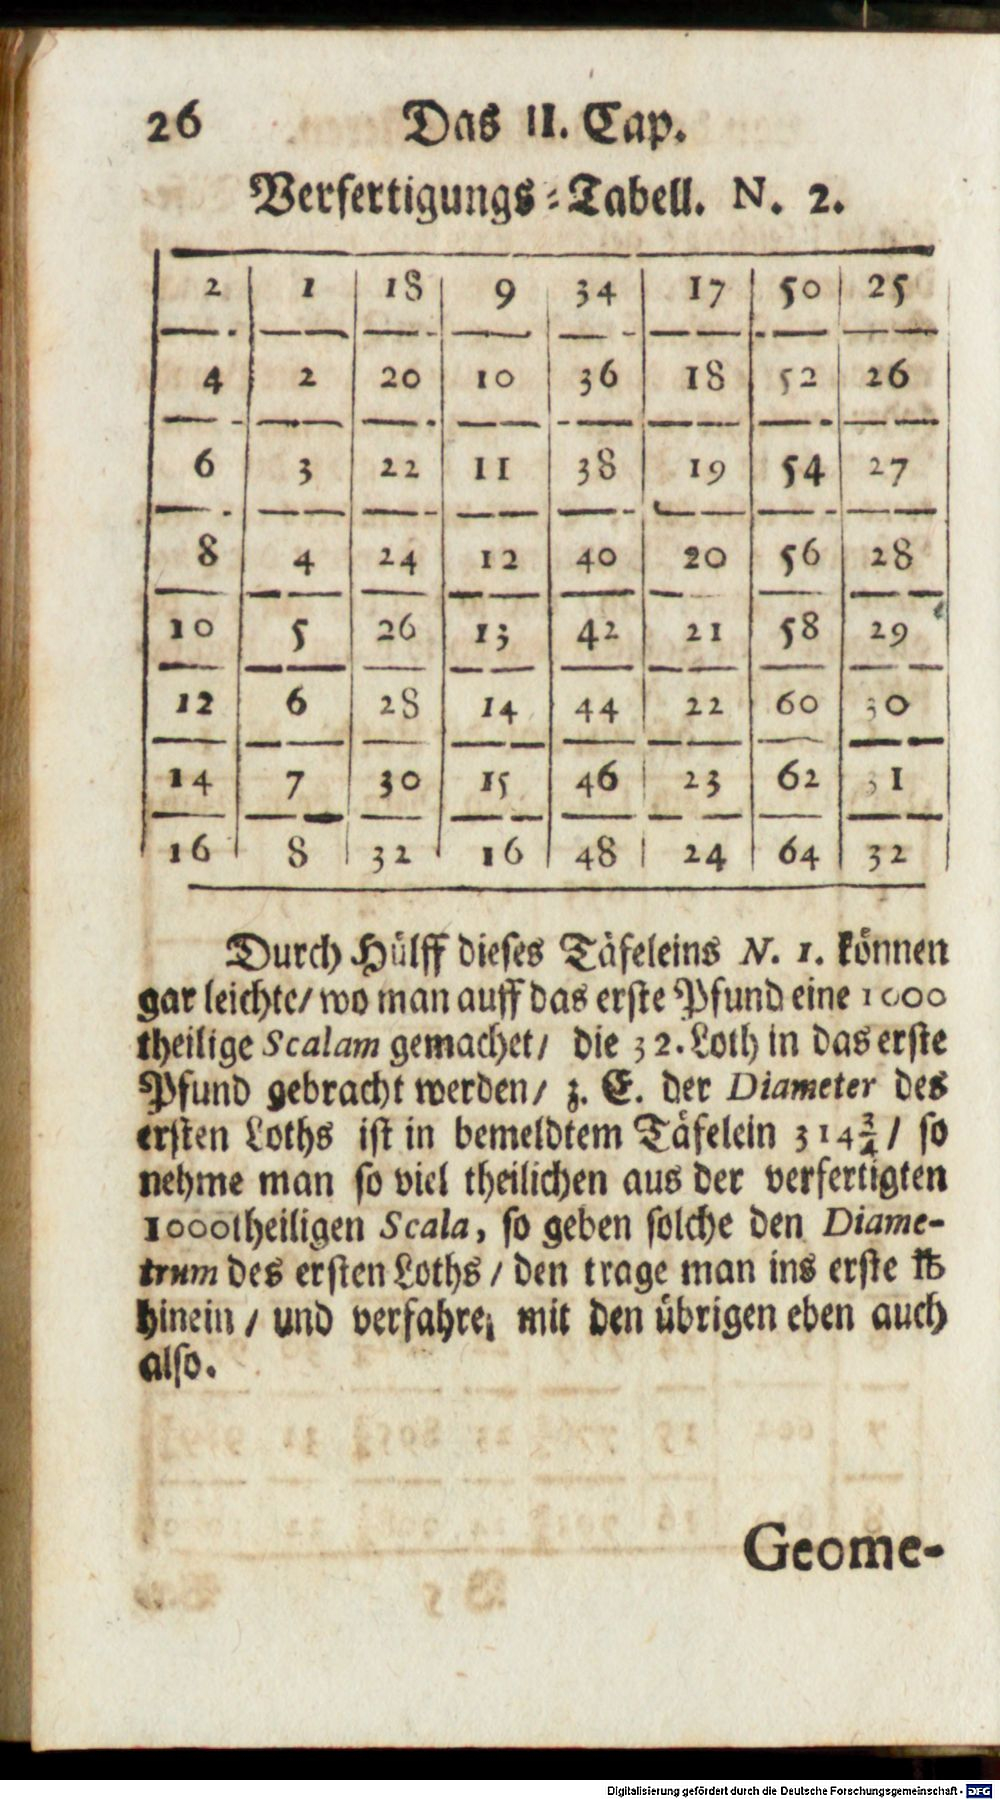 26 Das II. Cap.
Verfertigungs-Tabell. N. 2.
2 1 18 9 34 17 50 25
4 2 20 10 36 18 52 26
6 3 22 11 38 19 54 27
8 4 24 12 40 20 56 28
10 5 26 13 42 21 58 29
12 6 28 14 44 22 60 30
14 7 30 15 46 23 62 31
16 8 32 16 48 24 64 32
Durch Hülff dieses Täfeleins N. 1. können
gar leichte/ wo man auff das erste Pfund eine 1000
theilige Scalam gemachet/ die 32. Loth in das erste
Pfund gebracht werden/ z. E. der Diameter des
ersten Loths ist in bemeldtem Täfelein 314¾ / so
nehme man so viel theilichen aus der verfertigten
1000theiligen Scala, so geben solche den Diame-
trum des ersten Loths / den trage man ins erste ℔
hinein / und verfahre; mit den übrigen eben auch
also.
Geome-
Digitalisierung gefördert durch die Deutsche Forschungsgemeinschaft - DFG